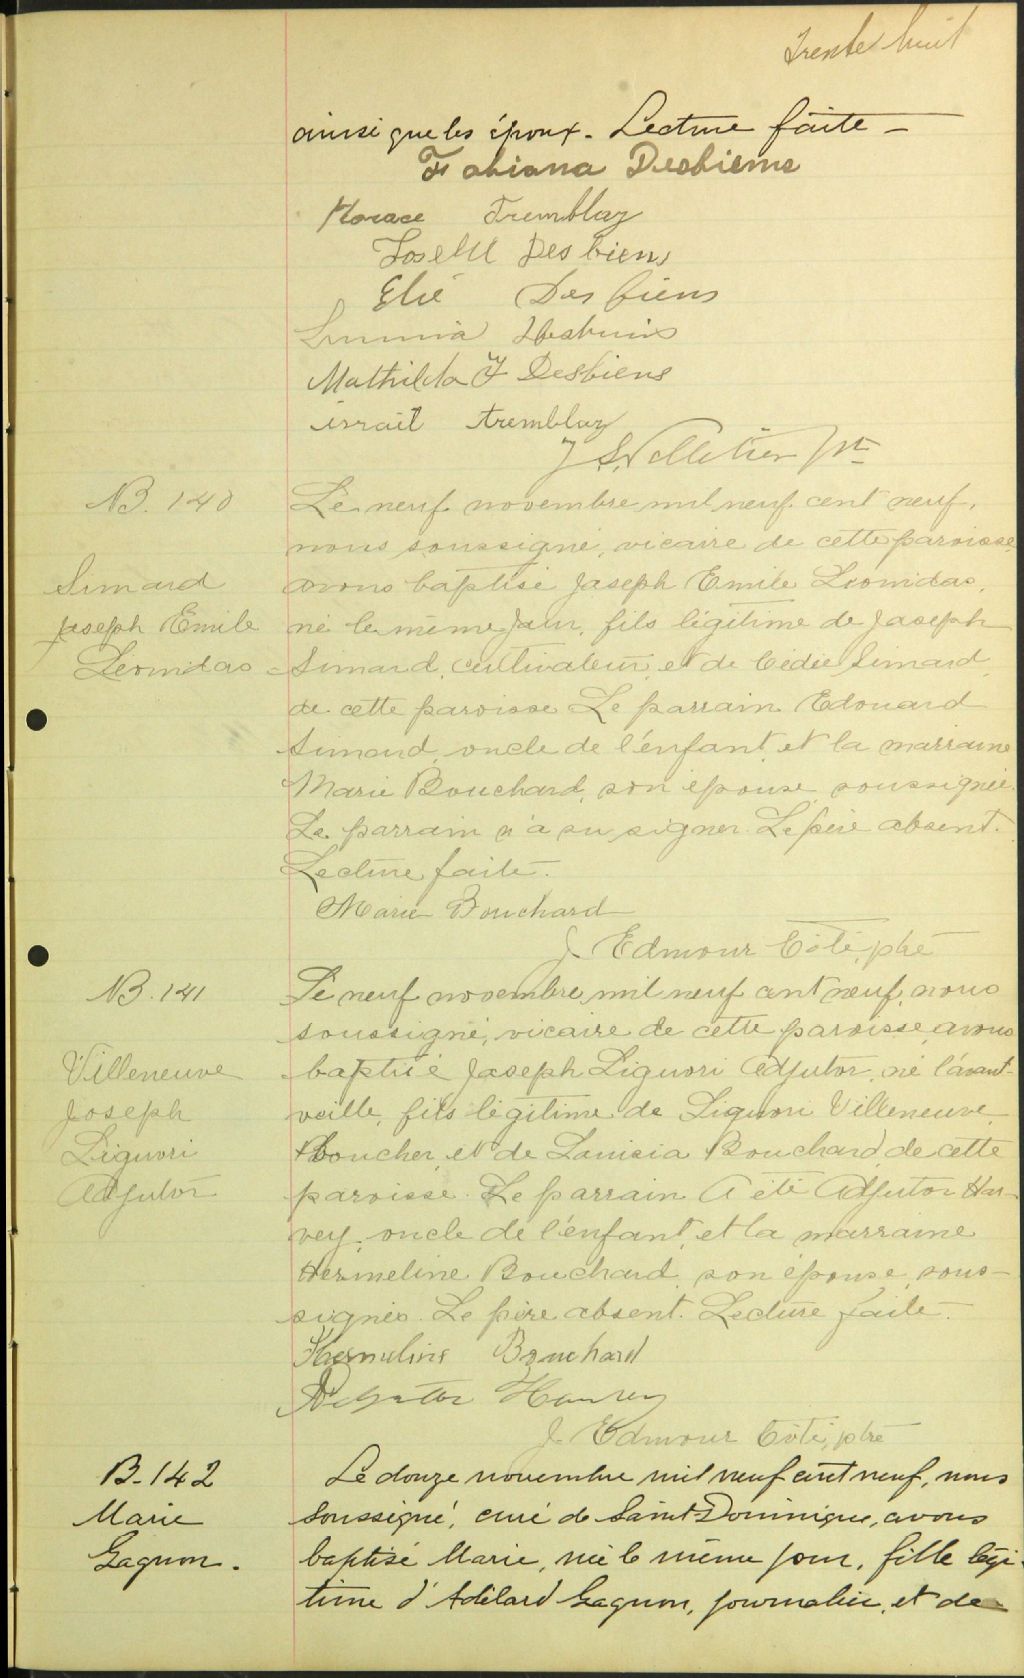 Trente huit
ainsi que les époux. Lecture faite -
Fabiana Desbiens
Horace Tremblay
Desbiens
Elié Des biens
Mathilda J Desbiens
israil tremblay
J S Pelletier ptr
B. 140
Simard
Joseph Emile
Léonidas
Le neuf novembre mil neuf cent neuf,
nous soussigné, vicaire de cette paroisse,
avons baptisé Joseph Emile Leonidas,
né le même jour, fils légitime de Joseph
Simard, cultivateur, et de Cédie Simard,
de cette paroisse Le parrain Edouard
Simard, oncle de l'enfant, et la marraine
Marie Bouchard, son épouse soussignée.
Le parrain n'a su signer. Le père absent.
Lecture faite.
Marie Bouchard
J. Edmour Côté, ptre
B. 141
Villeneuve
Joseph
Liguori
Adjutor
Le neuf novembre mil neuf cent neuf, nous
soussigné, vicaire de cette paroisse, avons
baptisé Joseph Liguori Adjutor, né l'avant-
veille, fils légitime de Liguori Villeneuve,
boucher, et de Lauisia Bouchard, de cette
paroisse. Le parrain a été Adjutor Har-
vey, oncle de l'enfant, et la marraine
Hermeline Bouchard, son épouse, sous-
signés. Le père absent. Lecture faite.
Hermeline Bouchard
Adjutor Harvey
J. Edmour Côté, ptre
B. 142
Marie
Gagnon.
Le douze novembre mil neuf cent neuf, nous
soussigné, curé de Saint-Dominique, avons
baptisé Marie, née le même jour, fille légi-
time d'Adélard Gagnon, journalier, et de